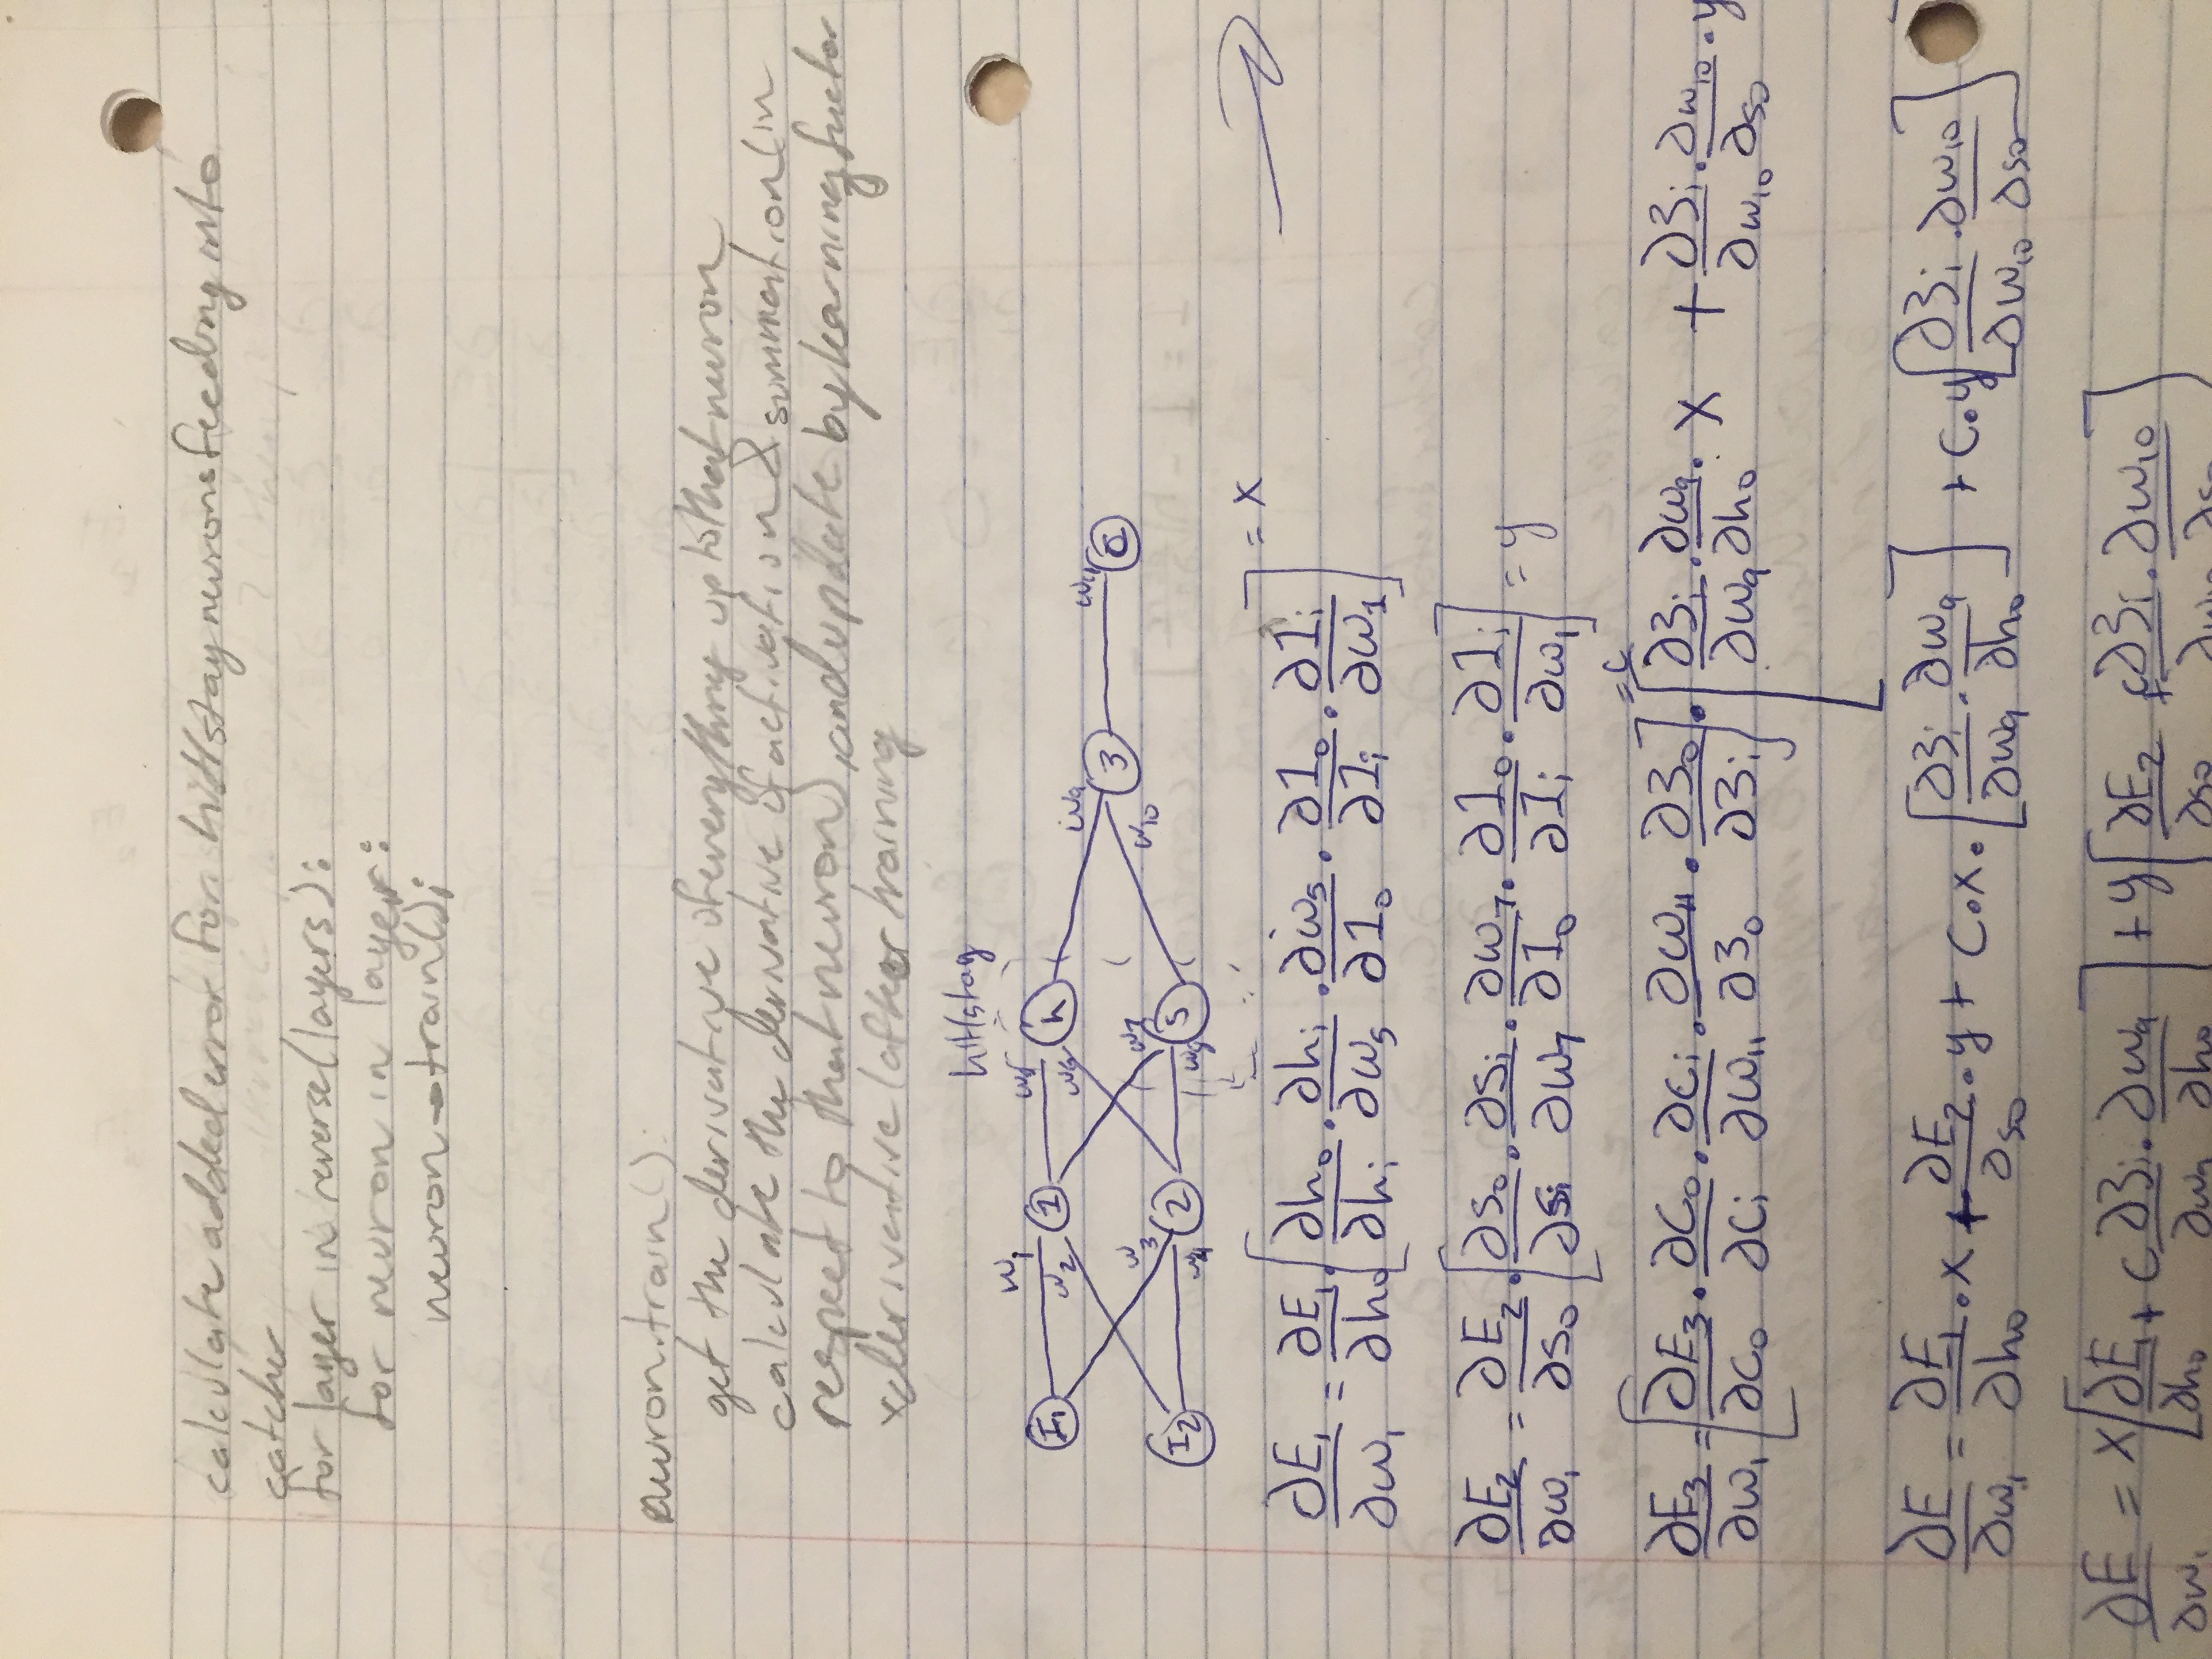 calculate added error for hit/stay neurons feeding into
catcher
for layer in reverse(layers):
for neuron in layer:
neuron→train();
neuron.train():
get the derivative of everything up to that neuron
calculate the derivative of activation & summation (in
respect to that neuron), and update by learning factor
x derivative (after training
hit/stay
I₁ w₁ w₂ 1 w₅ w₆ h w₉ 3 w₁₁ C
I₂ w₃ w₄ 2 w₇ w₈ S w₁₀
∂E₁/∂w₁ = ∂E₁/∂h₀ · [∂h₀/∂hᵢ · ∂hᵢ/∂w₅ · ∂w₅/∂1₀ · ∂1₀/∂1ᵢ · ∂1ᵢ/∂w₁] = x
∂E₂/∂w₁ = ∂E₂/∂s₀ · [∂s₀/∂sᵢ · ∂sᵢ/∂w₇ · ∂w₇/∂1₀ · ∂1₀/∂1ᵢ · ∂1ᵢ/∂w₁] = y
∂E₃/∂w₁ = [∂E₃/∂C₀ · ∂C₀/∂Cᵢ · ∂Cᵢ/∂w₁₁ · ∂w₁₁/∂3₀ · ∂3₀/∂3ᵢ] = c · [∂3ᵢ/∂w₉ · ∂w₉/∂h₀ · x + ∂3ᵢ/∂w₁₀ · ∂w₁₀/∂s₀ · y
∂E/∂w₁ = ∂E₁/∂h₀ · x + ∂E₂/∂s₀ · y + c · x · [∂3ᵢ/∂w₉ · ∂w₉/∂h₀] + c · y [∂3ᵢ/∂w₁₀ · ∂w₁₀/∂s₀]
∂E/∂w₁ = x [∂E₁/∂h₀ + c ∂3ᵢ/∂w₉ · ∂w₉/∂h₀] + y [∂E₂/∂s₀ + c ∂3ᵢ/∂w₁₀ · ∂w₁₀/∂s₀]